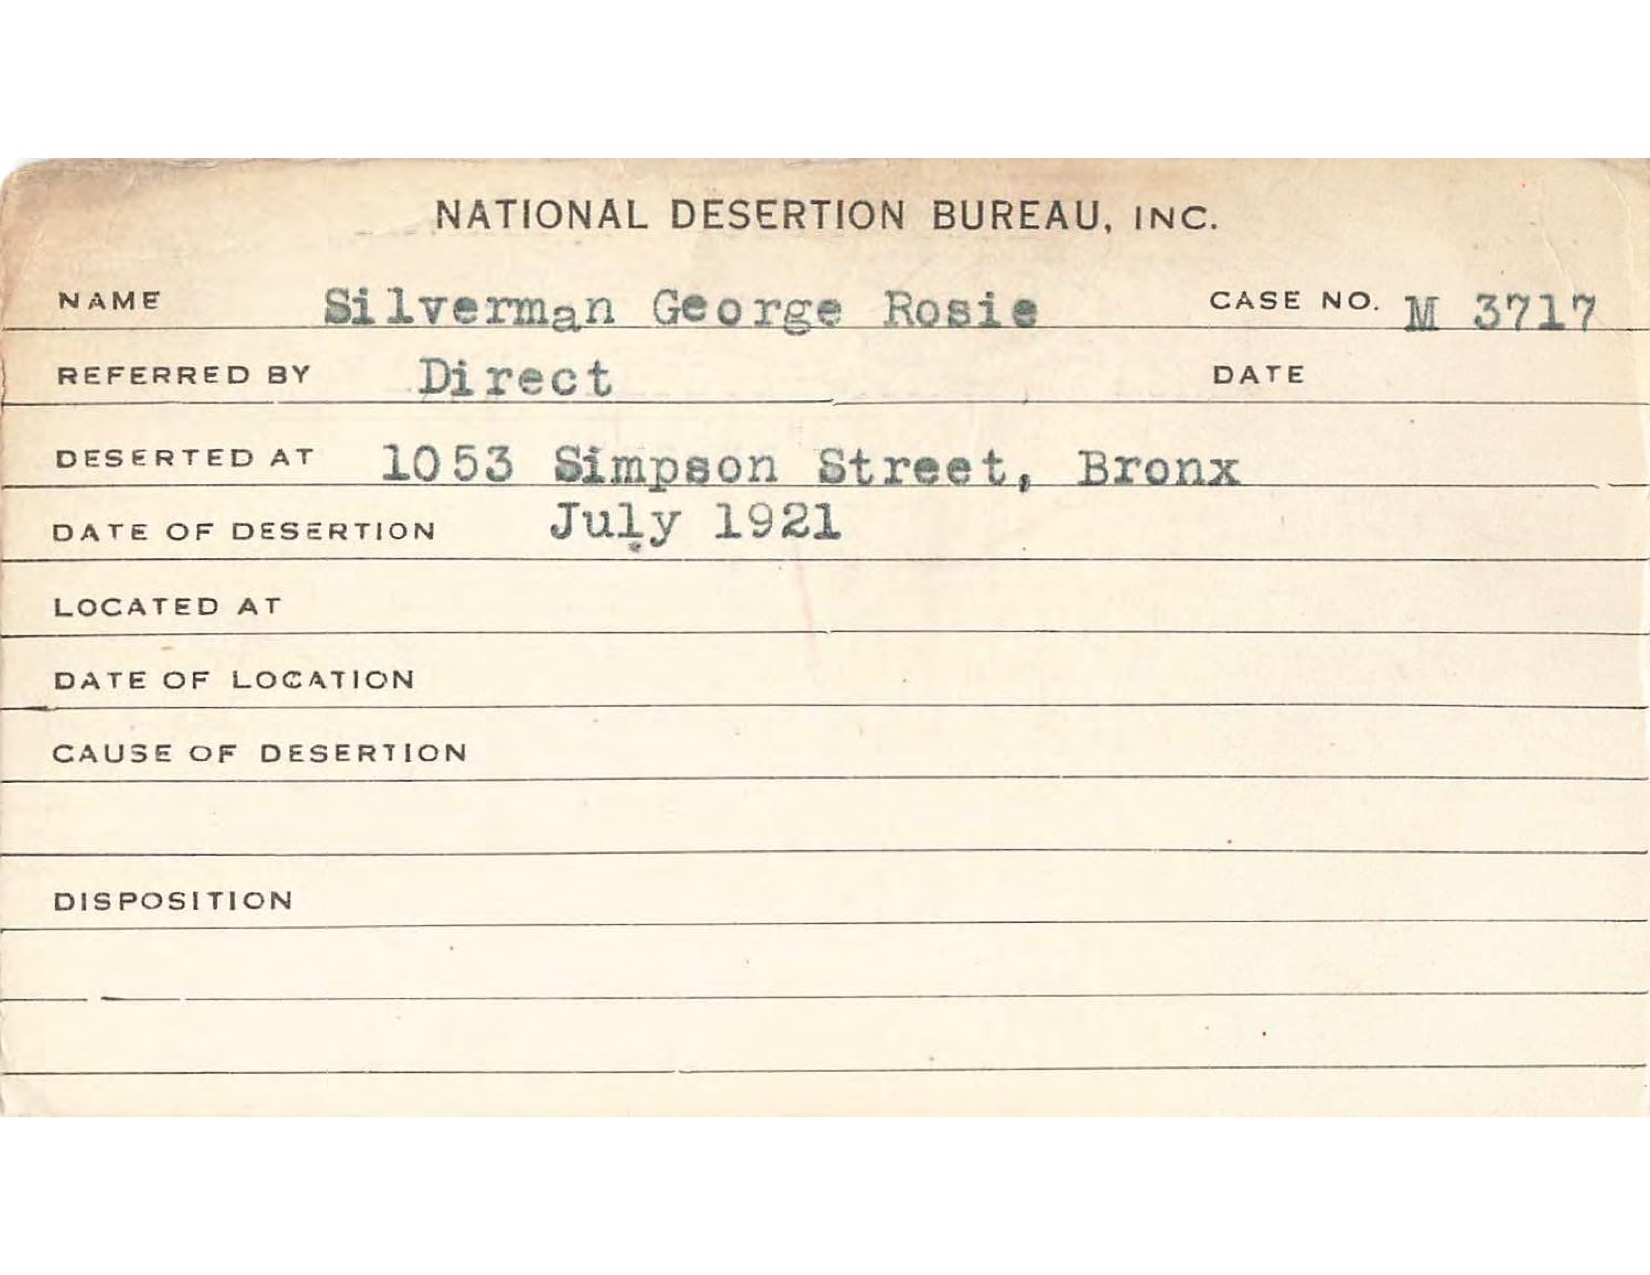 NATIONAL DESERTION BUREAU, INC.
NAME Silverman George Rosie CASE NO. M 3717
REFERRED BY Direct DATE
DESERTED AT 1053 Simpson Street, Bronx
DATE OF DESERTION July 1921
LOCATED AT
DATE OF LOCATION
CAUSE OF DESERTION
DISPOSITION